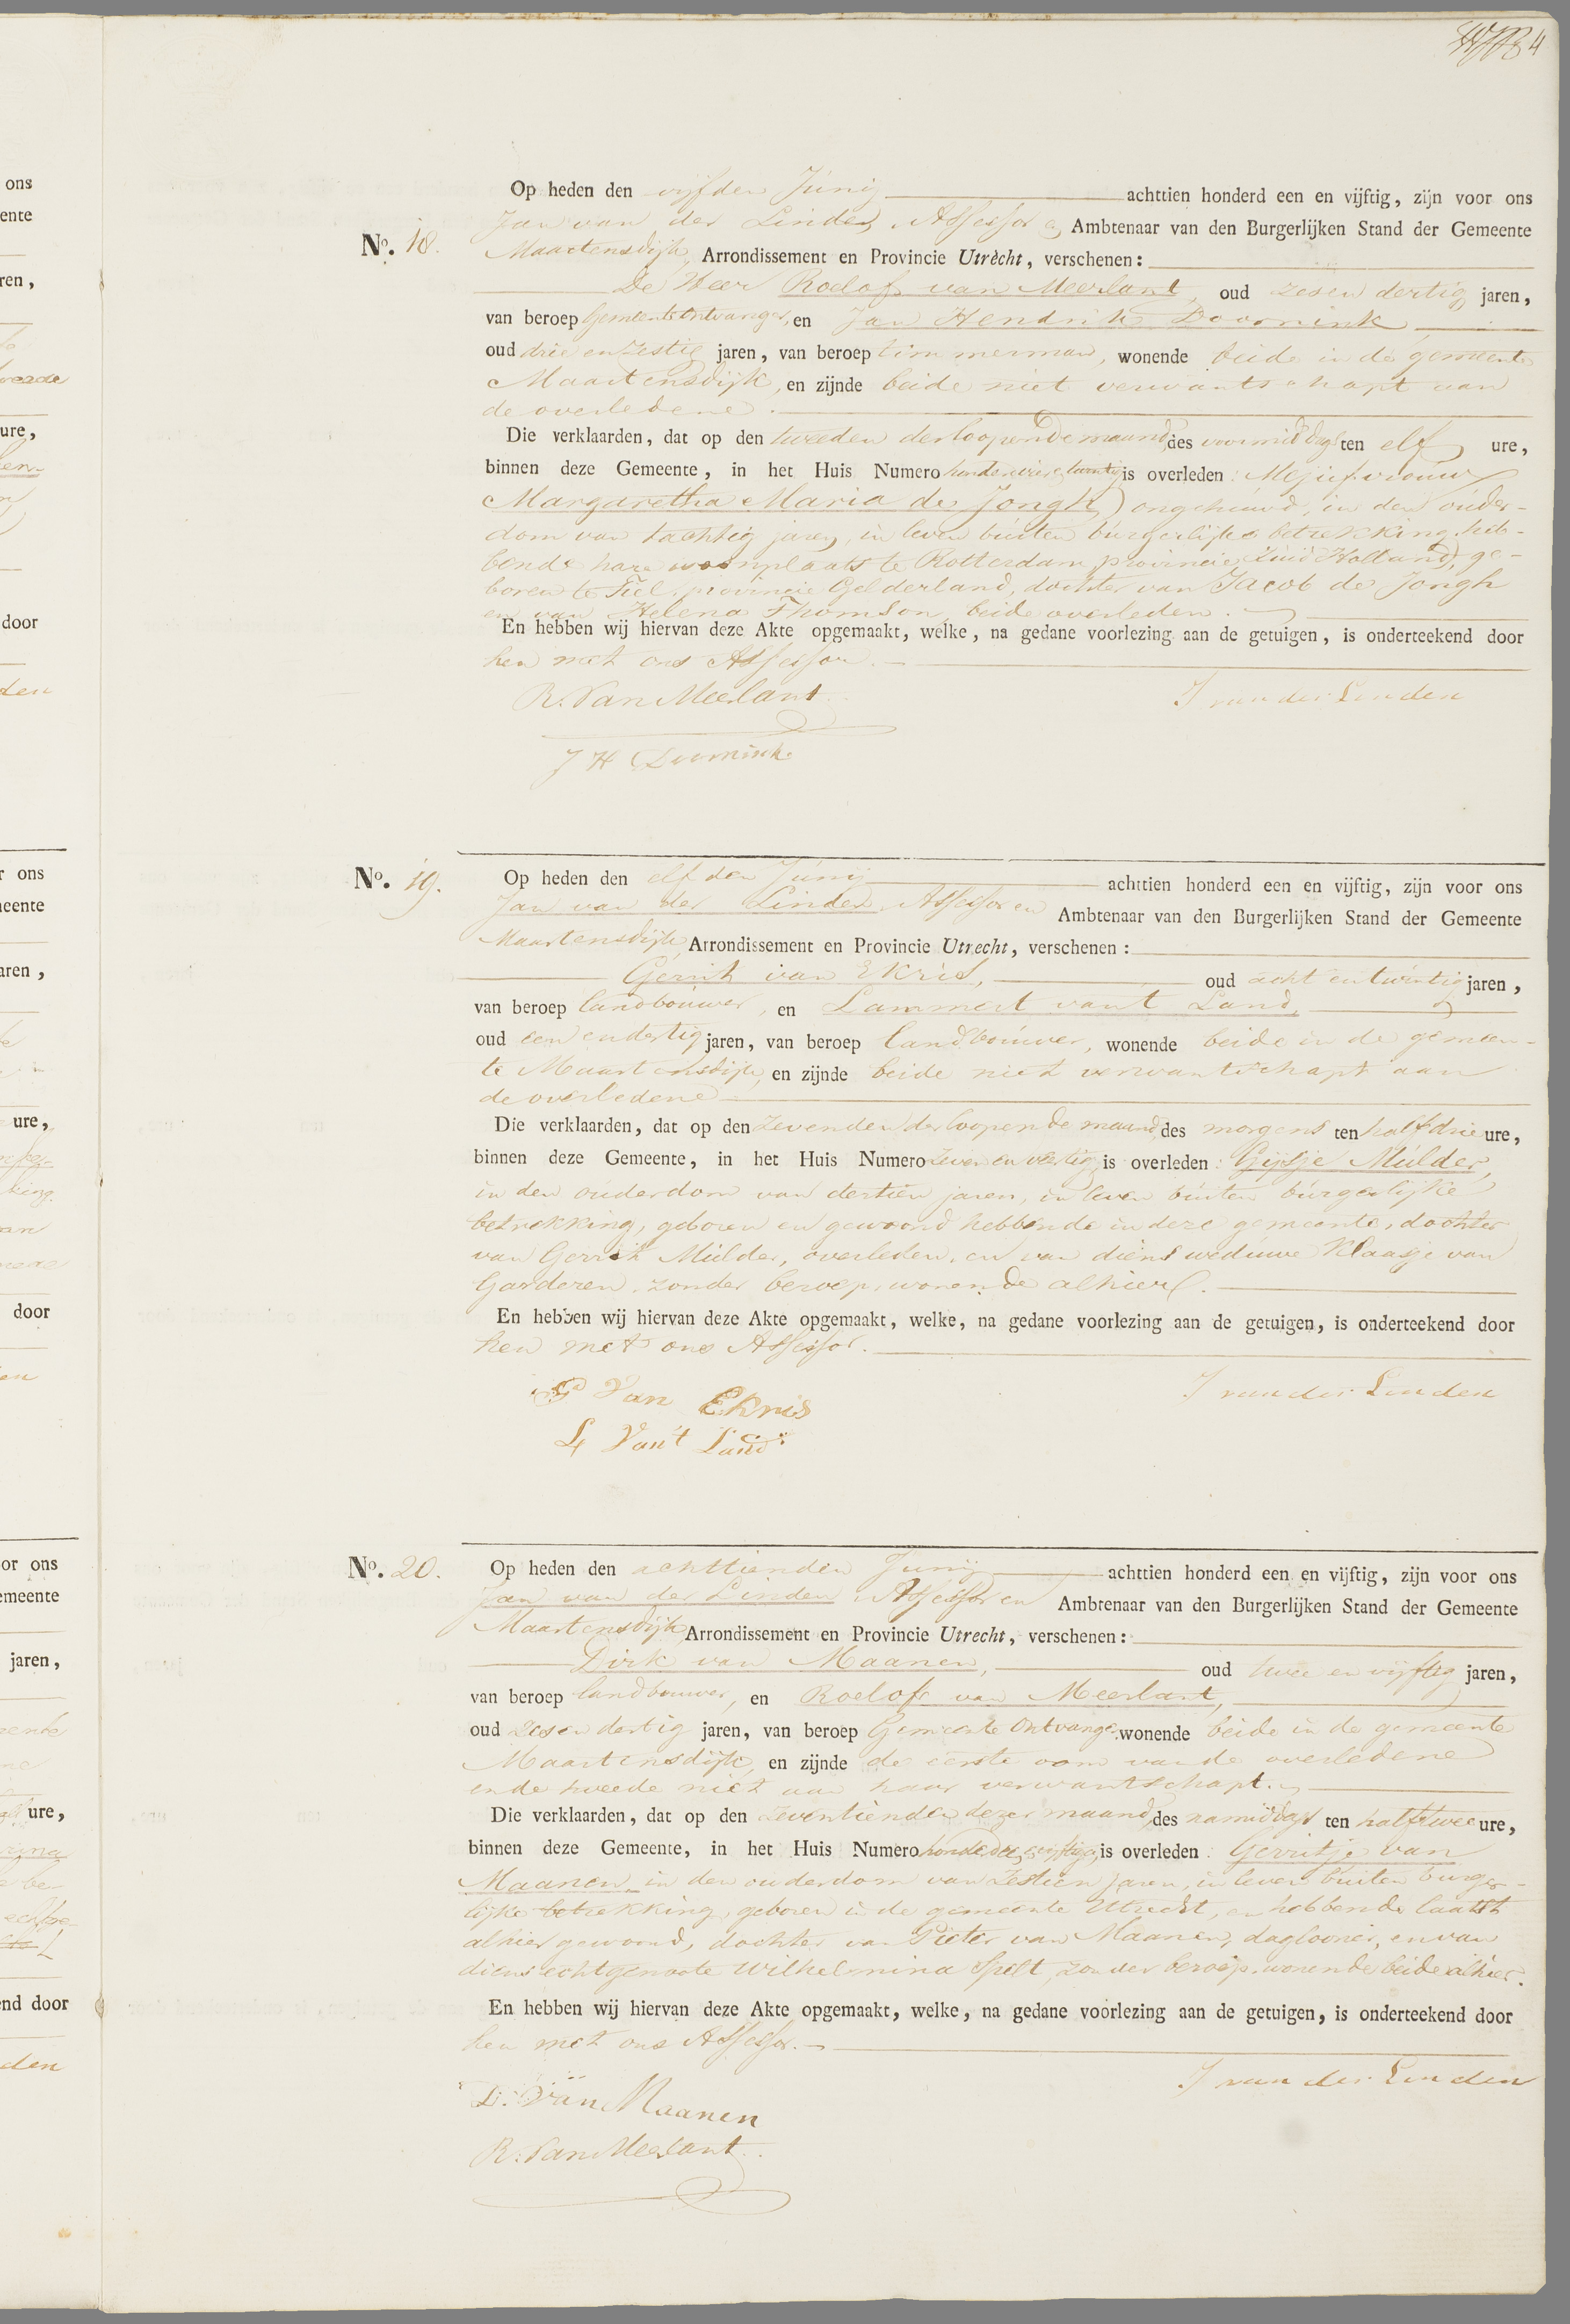 4
Op heden den vijfden Junij achttien honderd een en vijftig, zijn voor ons
Jan van der Linden, Assessor en Ambtenaar van den Burgerlijken Stand der Gemeente
No. 18.
Maartensdijk, Arrondissement en Provincie Utrecht, verschenen:
De Heer Roelof van Meerlant, oud zesendertig jaren,
van beroep Gemeente Ontvanger, en Jan Hendrik Doornink
oud drie en zestig jaren, van beroep timmerman, wonende beide in de gemeente
Maartensdijk, en zijnde beide niet verwantschapt aan
de overledene.
Die verklaarden, dat op den tweeden der loopende maand, des voormiddags ten elf ure,
binnen deze Gemeente, in het Huis Numero honderd vier en twintig is overleden: Mejufvrouw
Margaretha Maria de Jongh, ongehuwd, in den ouder-
dom van tachtig jaren, in leven buiten burgerlijke betrekking, heb-
bende hare woonplaats te Rotterdam, provincie Zuid Holland, ge-
boren te Tiel, provincie Gelderland, dochter van Jacob de Jongh
en van Helena Thomson, beide overleden.
En hebben wij hiervan deze Akte opgemaakt, welke, na gedane voorlezing aan de getuigen, is onderteekend door
hen met ons Assessor.
R. Van Meerlant
J van der Linden
J H Doornink
No. 19.
Op heden den elfden Junij achttien honderd een en vijftig, zijn voor ons
Jan van der Linden, Assessor en Ambtenaar van den Burgerlijken Stand der Gemeente
Maartensdijk, Arrondissement en Provincie Utrecht, verschenen:
Gerrit van Ekris, oud acht en twintig jaren,
van beroep landbouwer, en Lammert van't Land,
oud een en dertig jaren, van beroep landbouwer, wonende beide in de gemeen-
te Maartensdijk, en zijnde beide niet verwantschapt aan
de overledene
Die verklaarden, dat op den zevenden der loopende maand, des morgens ten half drie ure,
binnen deze Gemeente, in het Huis Numero zeven en veertig, is overleden: Gijsje Mulder,
in den ouderdom van dertien jaren, in leven buiten burgerlijke
betrekking, geboren en gewoond hebbende in deze gemeente, dochter
van Gerrit Mulder, overleden, en van diens weduwe Klaasje van
Garderen, zonder beroep, wonende alhier.
En hebben wij hiervan deze Akte opgemaakt, welke, na gedane voorlezing aan de getuigen, is onderteekend door
hen met ons Assessor.
G Van Ekris
J van der Linden
L Van't Land
No. 20.
Op heden den achttienden Junij achttien honderd een en vijftig, zijn voor ons
Jan van der Linden, Assessor en Ambtenaar van den Burgerlijken Stand der Gemeente
Maartensdijk, Arrondissement en Provincie Utrecht, verschenen:
Dirk van Maanen, oud twee en vijftig jaren,
van beroep landbouwer, en Roelof van Meerlant,
oud zesendertig jaren, van beroep Gemeente Ontvanger wonende beide in de gemeente
Maartensdijk, en zijnde de eerste oom van de overledene
en de tweede niet aan haar verwantschapt.
Die verklaarden, dat op den zeventienden dezer maand, des namiddags ten half twee ure,
binnen deze Gemeente, in het Huis Numero honderd drie en vijftig, is overleden: Gerritje van
Maanen, in den ouderdom van zestien jaren, in leven buiten burger-
lijke betrekking, geboren in de gemeente Utrecht, en hebbende laatst
alhier gewoond, dochter van Pieter van Maanen, daglooner, en van
diens echtgenoote Wilhelmina Spelt, zonder beroep, wonende beide alhier.
En hebben wij hiervan deze Akte opgemaakt, welke, na gedane voorlezing aan de getuigen, is onderteekend door
hen met ons Assessor.
J van der Linden
D. van Maanen
R. Van Meerlant